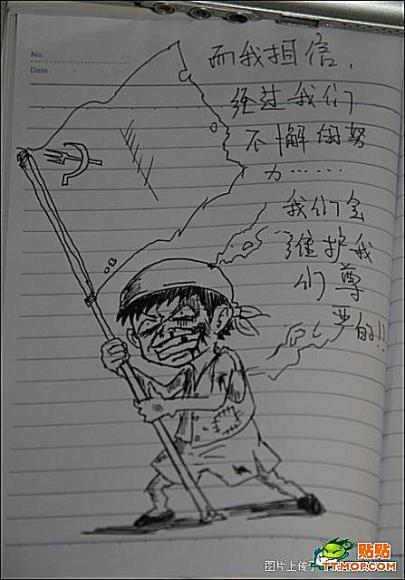 No.
Date
而我相信,
经过我们
不懈的努
力……
我们会
维护我
们尊
严的!!
图片上传于
贴贴
TTMOP.COM